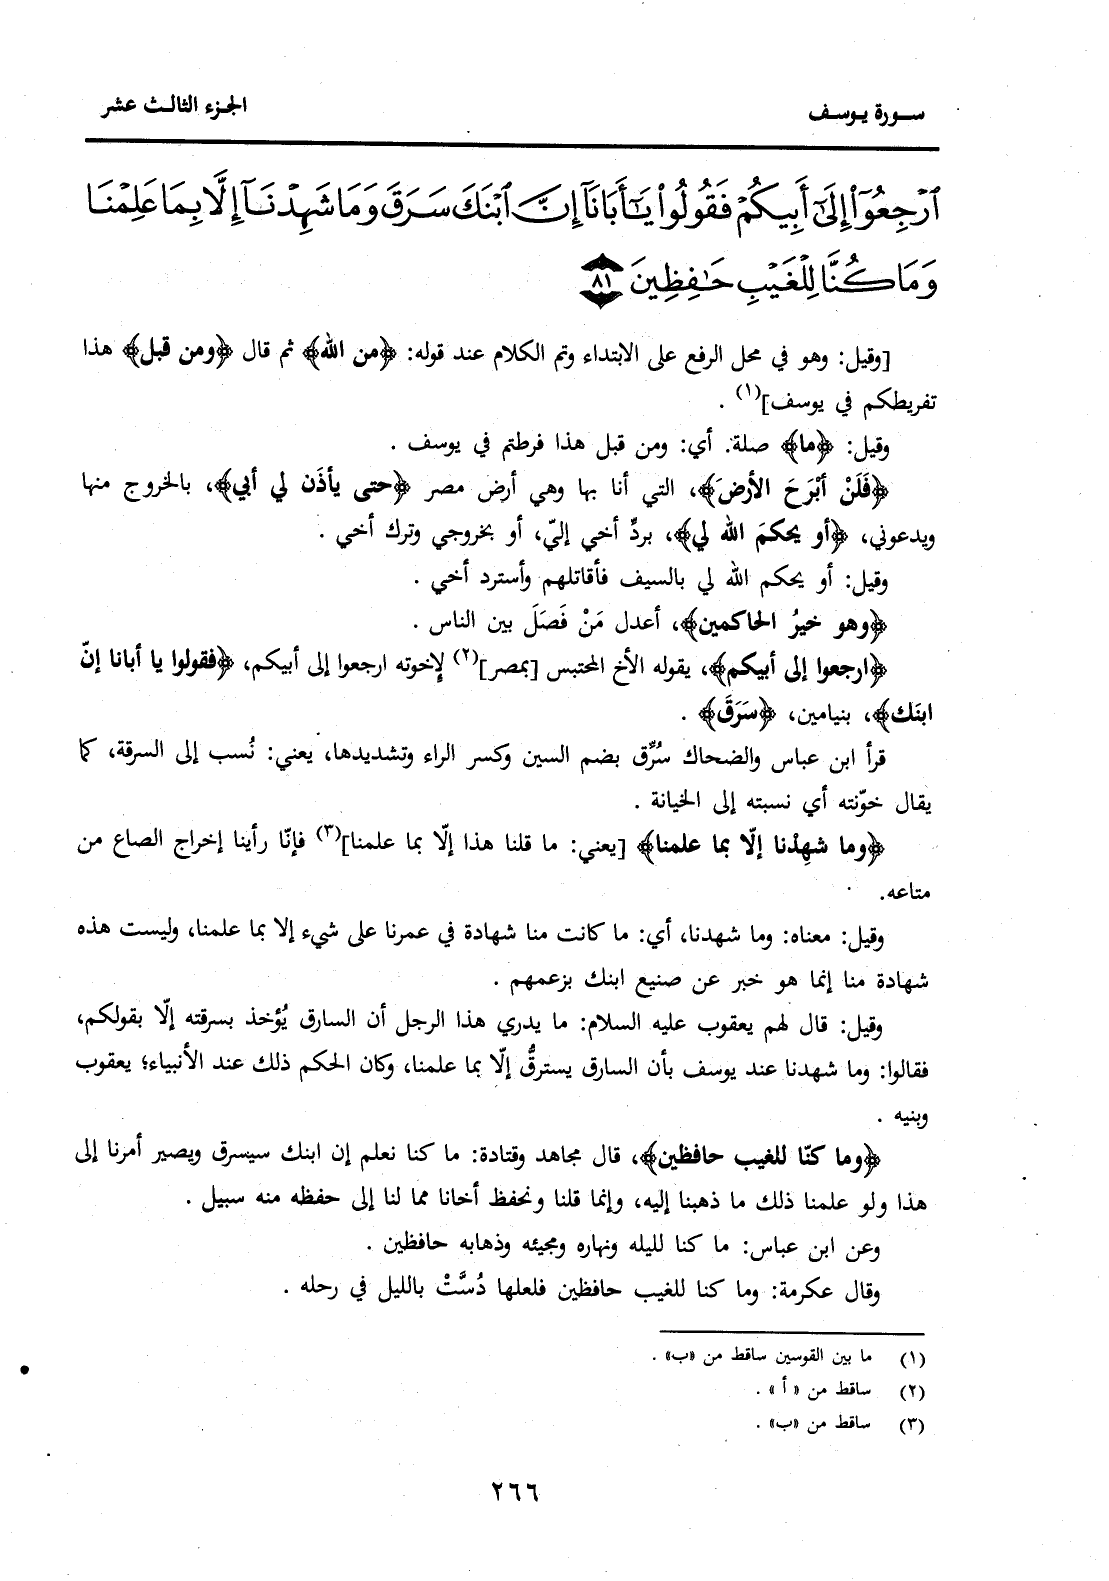 سـورة يوسـف
الجزء الثالث عشر
ٱرۡجِعُوٓاْ إِلَىٰٓ أَبِيكُمۡ فَقُولُواْ يَٰٓأَبَانَآ إِنَّ ٱبۡنَكَ سَرَقَ وَمَا شَهِدۡنَآ إِلَّا بِمَا عَلِمۡنَا
وَمَا كُنَّا لِلۡغَيۡبِ حَٰفِظِينَ ٨١
[وقيل: وهو في محل الرفع على الابتداء وتم الكلام عند قوله: ﴿من الله﴾ ثم قال ﴿ومن قبل﴾ هذا
تفريطكم في يوسف](١) .
وقيل: ﴿ما﴾ صلة. أي: ومن قبل هذا فرطتم في يوسف .
﴿فَلَنْ أَبْرَحَ الأرضَ﴾، التي أنا بها وهي أرض مصر ﴿حتى يأذَن لي أبي﴾، بالخروج منها
ويدعوني، ﴿أو يحكمَ الله لي﴾، بردِّ أخي إليّ، أو بخروجي وترك أخي .
وقيل: أو يحكم الله لي بالسيف فأقاتلهم وأسترد أخي .
﴿وهو خيرُ الحاكمين﴾، أعدل مَنْ فَصَلَ بين الناس .
﴿ارجعوا إلى أبيكم﴾، يقوله الأخ المحتبس [بمصر](٢) لإخوته ارجعوا إلى أبيكم، ﴿فقولوا يا أبانا إنّ
ابنَك﴾، بنيامين، ﴿سَرَقَ﴾ .
قرأ ابن عباس والضحاك سُرِّق بضم السين وكسر الراء وتشديدها، يعني: نُسب إلى السرقة، كما
يقال خوّنته أي نسبته إلى الخيانة .
﴿وما شهِدْنا إلّا بما علمنا﴾ [يعني: ما قلنا هذا إلّا بما علمنا](٣) فإنّا رأينا إخراج الصاع من
متاعه.
وقيل: معناه: وما شهدنا، أي: ما كانت منا شهادة في عمرنا على شيء إلا بما علمنا، وليست هذه
شهادة منا إنما هو خبر عن صنيع ابنك بزعمهم .
وقيل: قال لهم يعقوب عليه السلام: ما يدري هذا الرجل أن السارق يُؤخذ بسرقته إلّا بقولكم،
فقالوا: وما شهدنا عند يوسف بأن السارق يسترقُّ إلّا بما علمنا، وكان الحكم ذلك عند الأنبياء؛ يعقوب
وبنيه .
﴿وما كنّا للغيب حافظين﴾، قال مجاهد وقتادة: ما كنا نعلم إن ابنك سيسرق ويصير أمرنا إلى
هذا ولو علمنا ذلك ما ذهبنا إليه، وإنما قلنا ونحفظ أخانا مما لنا إلى حفظه منه سبيل .
وعن ابن عباس: ما كنا لليله ونهاره ومجيئه وذهابه حافظين .
وقال عكرمة: وما كنا للغيب حافظين فلعلها دُسَّتْ بالليل في رحله .
(١) ما بين القوسين ساقط من «ب» .
(٢) ساقط من « أ » .
(٣) ساقط من «ب» .
٢٦٦